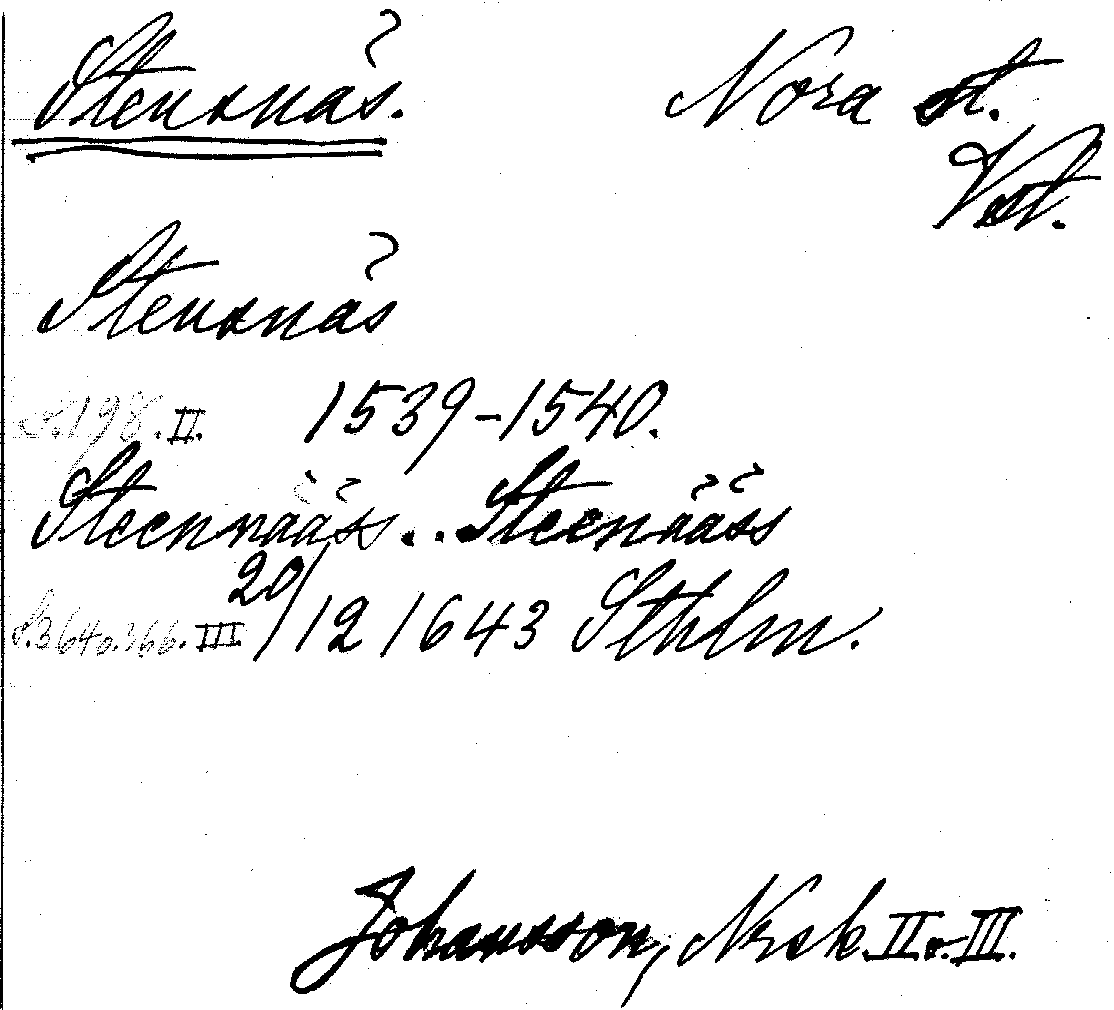 Stensnäs.
Nora st.
Vst.
Stensnäs
S.198.II. 1539-1540.
Steennääss . . Steenääss
S.364o.366.III 20/12 1643 Sthlm.
Johansson, Nrsk.II o. III.